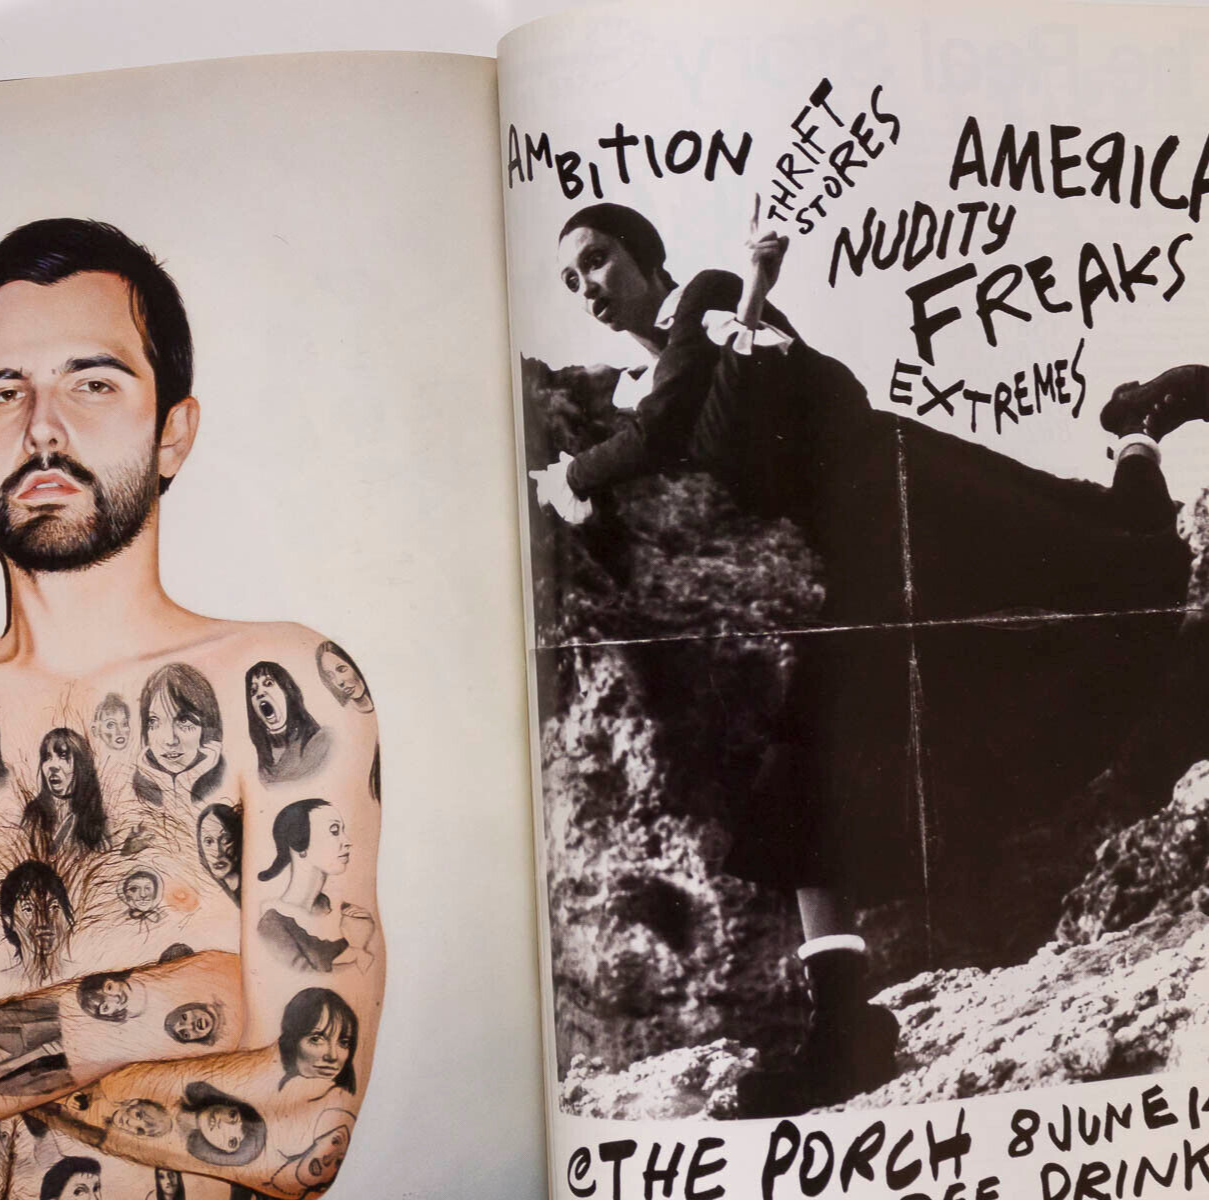 AMBITION
THRIFT
STORES
AMERICA
NUDITY
FREAKS
EXTREMES
@THE PORCH 8 JUNE
DRINK